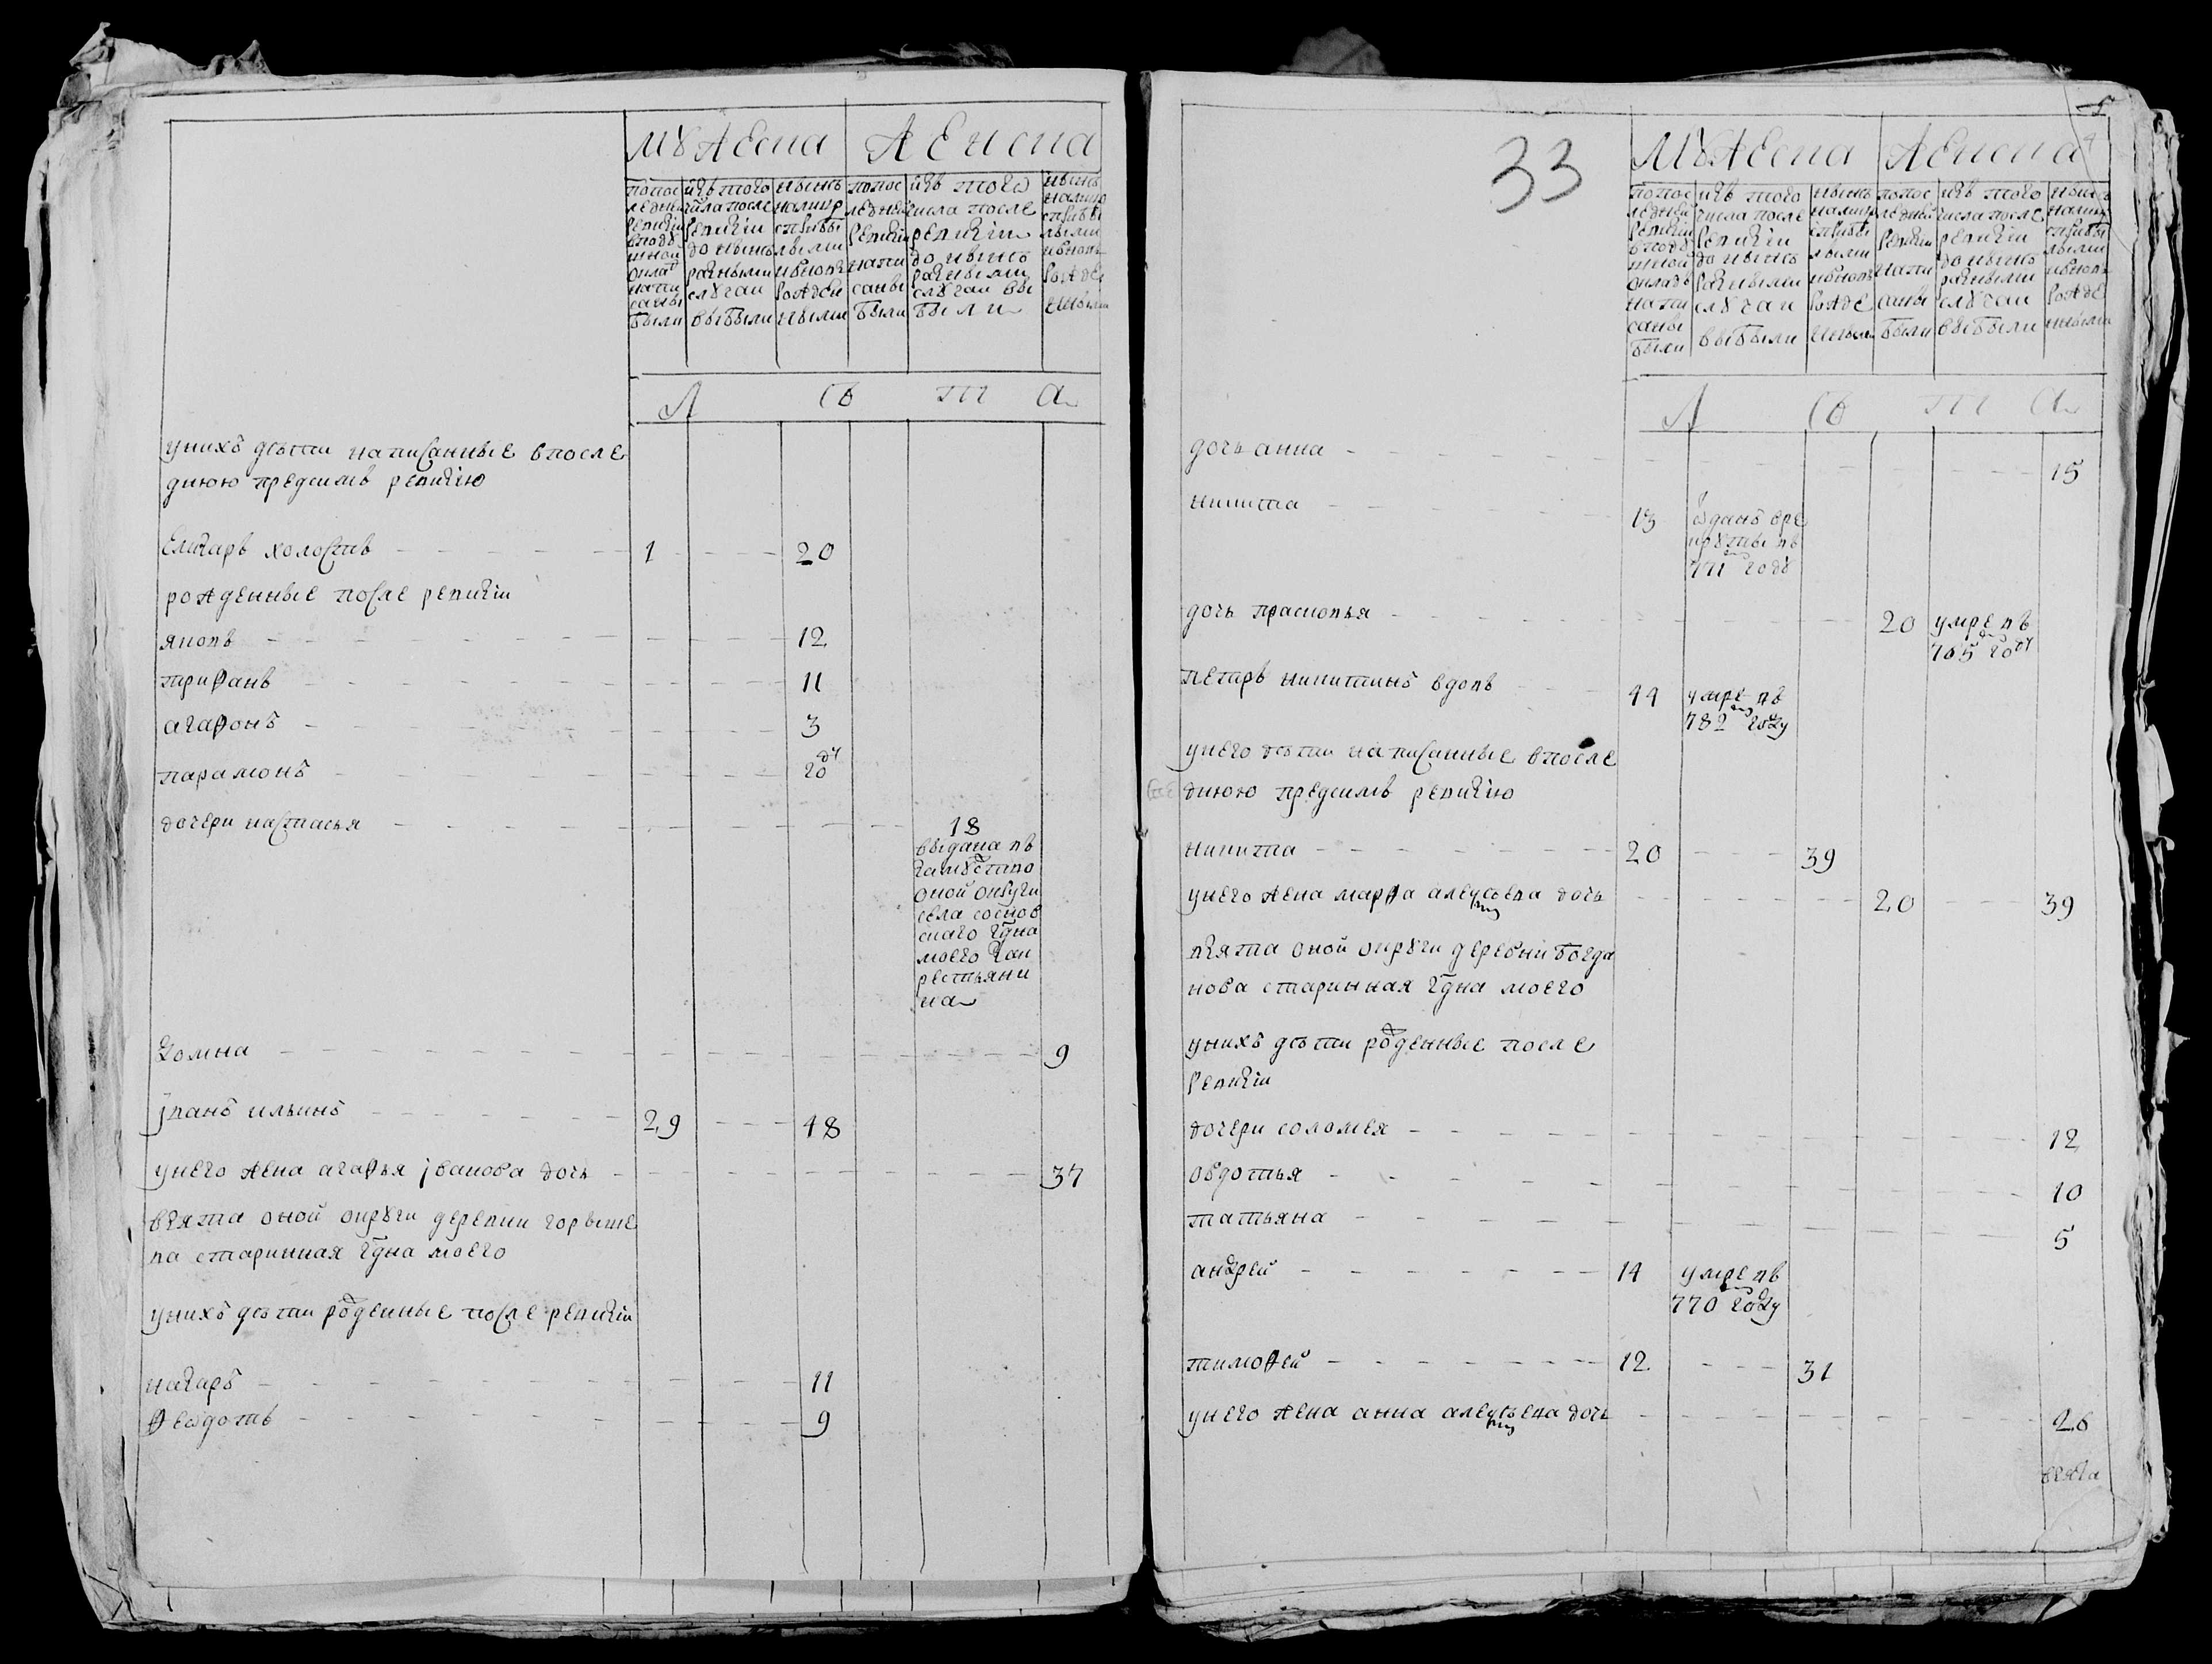 мужеска женска
попос лѣдней ревизiи вподу шной оклат напи саны были
изъ того числа после ревизiи до нынѣ разными случаи выбыли
нынѣ налицо сприбы лыми ивновь рожден ными
попос лѣдней ревизiи напи саны были
изъ того числа после ревизiи до нынѣ разными случаи вы были
нынѣ налицо сприбы лыми ивновь рожде нными
лѣта
унихъ дѣти написанные впосле
днюю предсимъ ревизiю
Елизаръ холостъ 1 20
рожденные после ревизiи
яковъ 12
трифанъ 11
агафонъ 3
парамонъ году
дочери настасья 18
выдана въ
замужство
оной округи
села соснов
скаго гдна
моего закрестьяни
на
домна 9
иванъ ильинъ 29 48
унего жена агафья иванова дочь 37
взята оной округи деревни горыше
ва старинная гдна моего
унихъ дѣти рожденные после ревизiи
назаръ 11
федотъ 9
33
мужеска женска
попос ледней ревизiи вподу шной окладъ напи саны были
изъ того числа после ревизiи до нынѣ разными случаи выбыли
нынѣ налицо сприбы лыми ивновь рожде нными
попос ледней ревизiи напи саны были
изъ того числа после ревизiи до нынѣ разными случаи выбыли
нынѣ налицо сприбы лыми ивновь рожде нными
лѣта
дочь анна 15
никита 13 отданъ вре
круты въ
771 году
дочь прасковья 20 умре въ
765 году
петръ никитинъ вдовъ 44 умре въ
782 году
унего дѣти написанные впосле
днюю предсимъ ревизiю
никита 20 39
унего жена марфа алексѣева дочь 20 39
взята оной округи деревни богда
нова старинная гдна моего
унихъ дѣти рожденные после
ревизiи
дочери соломея 12
овдотья 10
татьяна 5
андрей 14 умре въ
770 году
тимофей 12 31
унего жена анна алексѣева дочь 26
взята